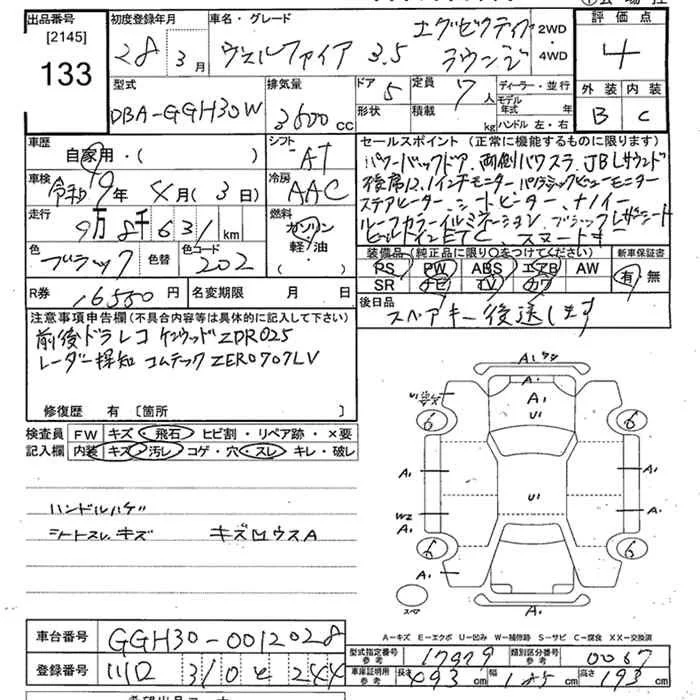 出品番号 初度登録年月 車名・グレード 評価点
[2145]
133
28年 3月 ヴェルファイア 3.5 エグゼクティブ ラウンジ 2WD・4WD 4
型式 排気量 ドア 定員 ディーラー・並行 外装 内装
DBA-GGH30W 3500cc 5 7人 モデル年式 年
形状 積載 kg ハンドル 左・右 B C
車歴 シフト セールスポイント(正常に機能するものに限ります)
自家用・( ) AT パワーバックドア、両側パワスラ、JBLサウンド
車検 冷房 後席12.1インチモニター、パノラミックビューモニター
令和9年 4月(3日) AAC ステアヒーター、シートヒーター、ナノイー
走行 燃料 ルーフカラーイルミネーション、ブラックレザーシート
9万8千631km ガソリン ビルトインETC、スマートキー
軽油 ( )
色 色替 色コード 装備品(純正品に限り○をつけてください) 新車保証書
ブラック 202 PS PW ABS エアB AW 有・無
SR ナビ TV カワ
R券 16550円 名変期限 月 日 後日品
スペアキー後送します
注意事項申告欄(不具合内容等は具体的に記入して下さい)
前後ドラレコ ケンウッドZDR025
レーダー探知 コムテックZERO707LV
修復歴 有 [箇所 ]
検査員 FW キズ・飛石・ヒビ割・リペア跡・×要
記入欄 内装 キズ・汚レ・コゲ・穴・スレ・キレ・破レ
ハンドルハゲ
シートスレ、キズ
A1
A1
A1
U1
U1
6 6
A1 A1
W2
A1 A1
6 6
A1
スペア
A1
A-キズ E-エクボ U-凹み W-補修跡 S-サビ C-腐食 XX-交換済
車台番号 GGH30-0012028
登録番号 310 244
型式指定番号 参考 17979 類別区分番号 参考 0067
車庫証明用 参考 長さ 493cm 幅 185cm 高さ 193cm